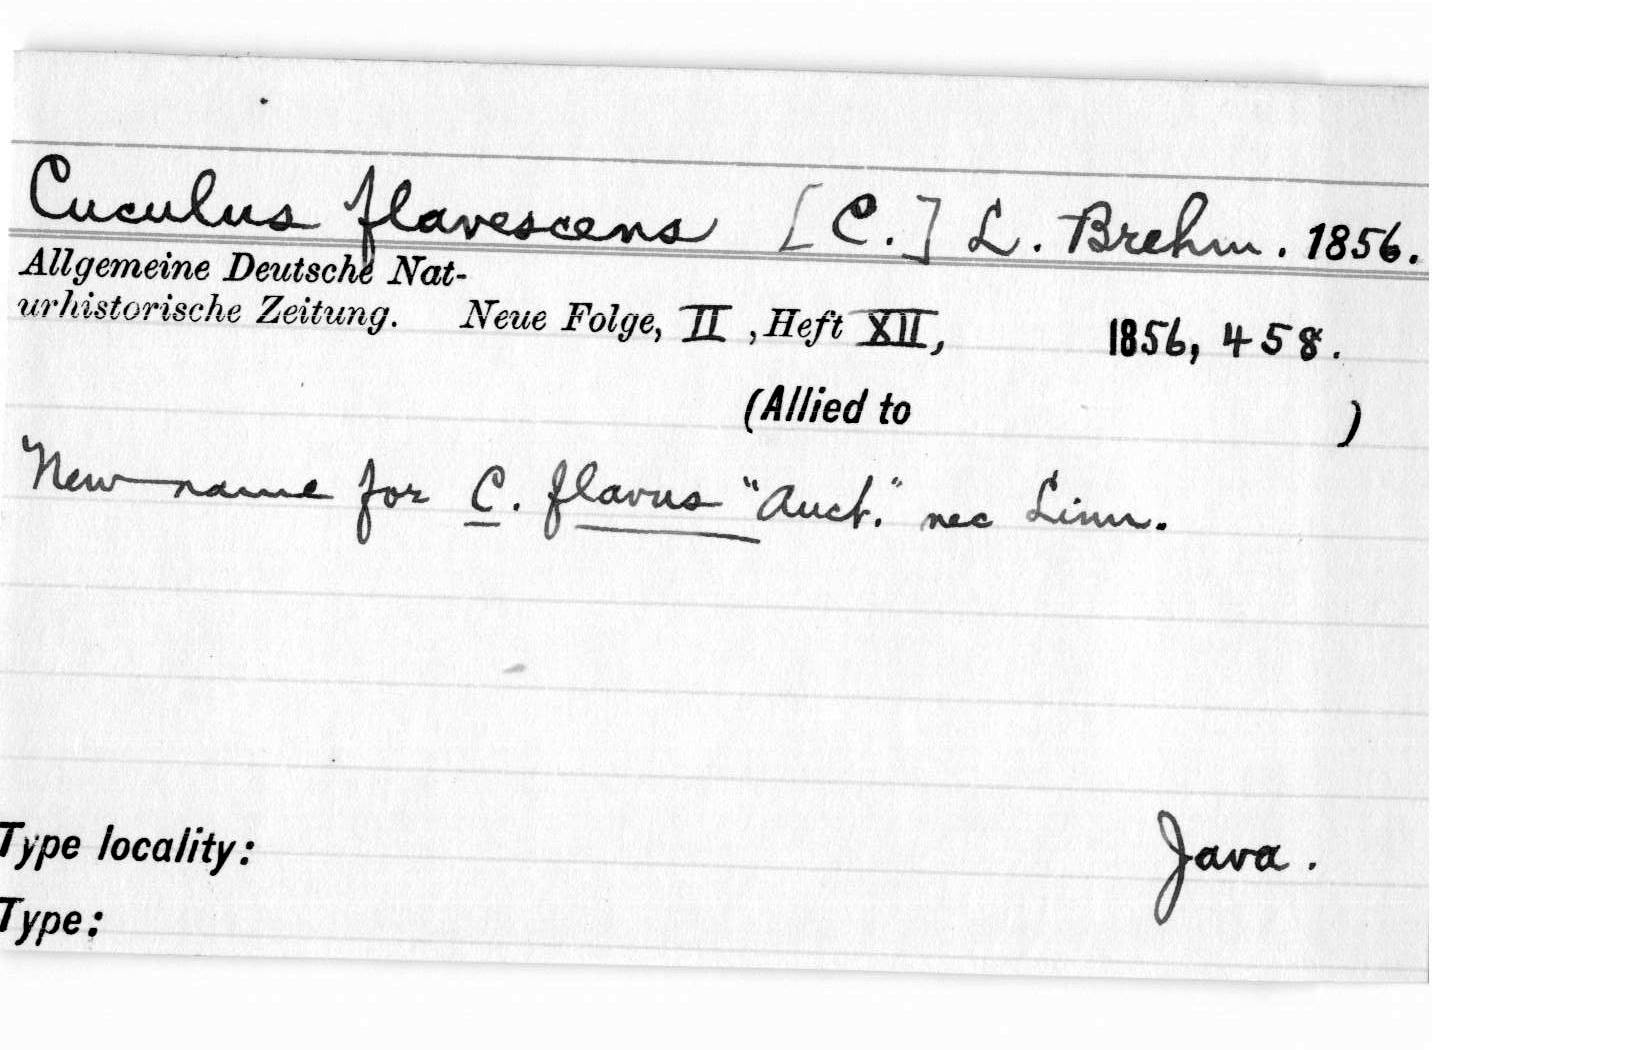 Cuculus flavescens [C.] L. Brehm. 1856.
Allgemeine Deutsche Nat-
urhistorische Zeitung. Neue Folge, II, Heft XII, 1856, 458.
(Allied to )
New name for C. flavus "Auct." nec Linn.
Type locality: Java.
Type: